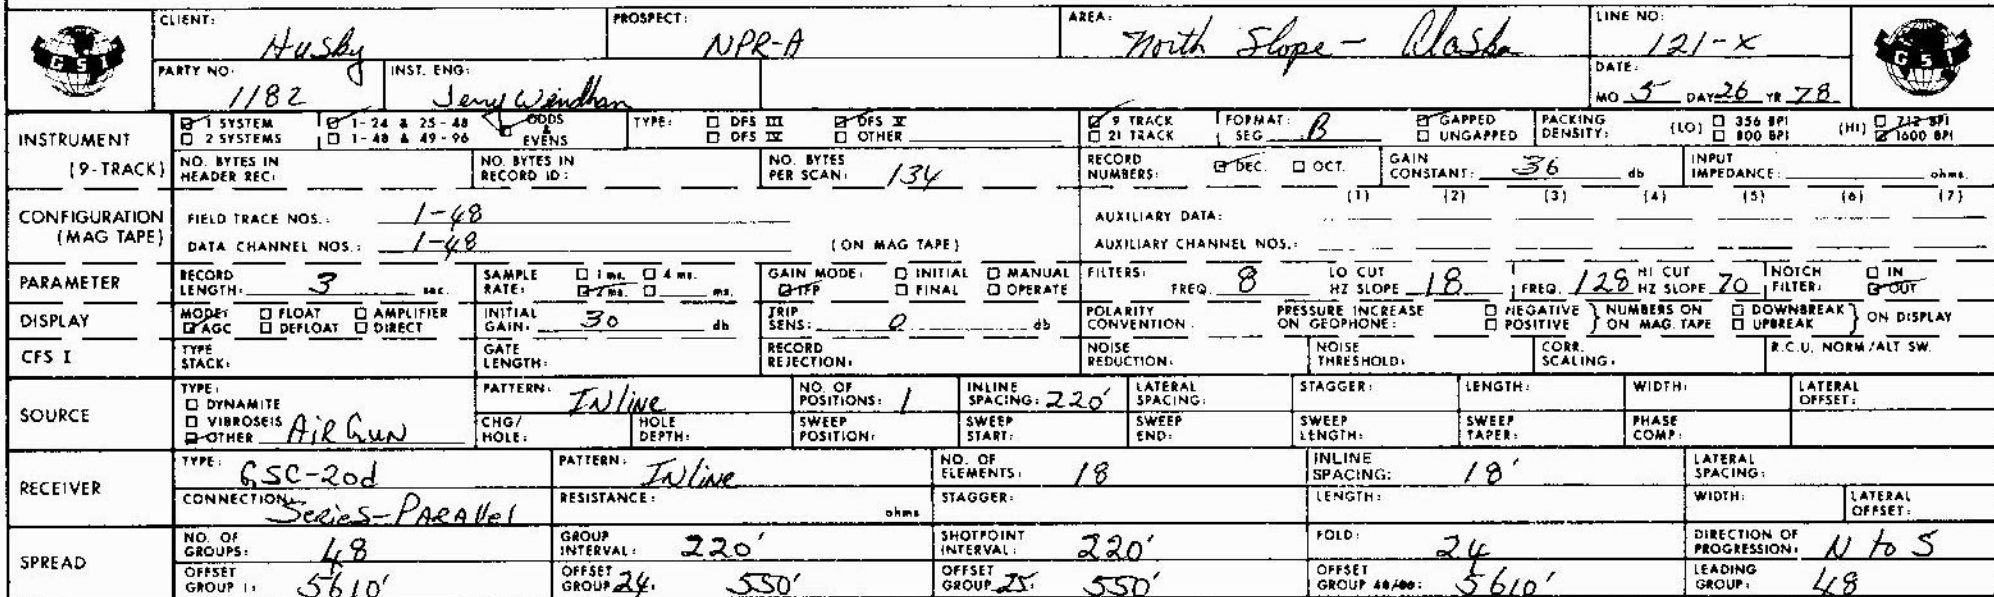 CLIENT: Husky PROSPECT: NPR-A AREA: North Slope - Alaska LINE NO: 121-X
GSI GSI
PARTY NO: 1182 INST. ENG: Jerry Windham DATE: MO 5 DAY 26 YR 78
INSTRUMENT (9-TRACK)
☑ 1 SYSTEM ☑ 1-24 & 25-48 ☑ ODDS & EVENS TYPE: ☐ DFS III ☑ DFS V ☑ 9 TRACK FORMAT: SEG B ☑ GAPPED PACKING DENSITY: (LO) ☐ 356 BPI (HI) ☐ 712 BPI
☐ 2 SYSTEMS ☐ 1-48 & 49-96 ☐ DFS IV ☐ OTHER ☐ 21 TRACK ☐ UNGAPPED ☐ 800 BPI ☑ 1600 BPI
NO. BYTES IN HEADER REC: NO. BYTES IN RECORD ID: NO. BYTES PER SCAN: 134 RECORD NUMBERS: ☑ DEC. ☐ OCT. GAIN CONSTANT: 36 db INPUT IMPEDANCE: ohms.
CONFIGURATION (MAG TAPE)
(1) (2) (3) (4) (5) (6) (7)
FIELD TRACE NOS.: 1-48 AUXILIARY DATA:
DATA CHANNEL NOS.: 1-48 (ON MAG TAPE) AUXILIARY CHANNEL NOS.:
PARAMETER RECORD LENGTH: 3 sec. SAMPLE RATE: ☐ 1 ms. ☐ 4 ms. ☑ 2 ms. ☐ ms. GAIN MODE: ☐ INITIAL ☐ MANUAL ☑ IFP ☐ FINAL ☐ OPERATE FILTERS: FREQ. 8 LO CUT HZ SLOPE 18 FREQ. 128 HI CUT HZ SLOPE 70 NOTCH FILTER: ☐ IN ☑ OUT
DISPLAY MODE: ☐ FLOAT ☐ AMPLIFIER ☑ AGC ☐ DEFLOAT ☐ DIRECT INITIAL GAIN: 30 db TRIP SENS: 0 db POLARITY CONVENTION: PRESSURE INCREASE ON GEOPHONE: ☐ NEGATIVE ☐ POSITIVE } NUMBERS ON ON MAG. TAPE ☐ DOWNBREAK ☐ UPBREAK } ON DISPLAY
CFS I TYPE STACK: GATE LENGTH: RECORD REJECTION: NOISE REDUCTION: NOISE THRESHOLD: CORR. SCALING: R.C.U. NORM/ALT SW.
SOURCE TYPE: ☐ DYNAMITE ☐ VIBROSEIS ☑ OTHER AIR GUN
PATTERN: INline NO. OF POSITIONS: 1 INLINE SPACING: 220' LATERAL SPACING: STAGGER: LENGTH: WIDTH: LATERAL OFFSET:
CHG/HOLE: HOLE DEPTH: SWEEP POSITION: SWEEP START: SWEEP END: SWEEP LENGTH: SWEEP TAPER: PHASE COMP:
RECEIVER TYPE: GSC-20d PATTERN: INline NO. OF ELEMENTS: 18 INLINE SPACING: 18' LATERAL SPACING:
CONNECTION: Series-PARAllel RESISTANCE: ohms STAGGER: LENGTH: WIDTH: LATERAL OFFSET:
SPREAD NO. OF GROUPS: 48 GROUP INTERVAL: 220' SHOTPOINT INTERVAL: 220' FOLD: 24 DIRECTION OF PROGRESSION: N to S
OFFSET GROUP 1: 5610' OFFSET GROUP 24: 550' OFFSET GROUP 25: 550' OFFSET GROUP 48/96: 5610' LEADING GROUP: 48